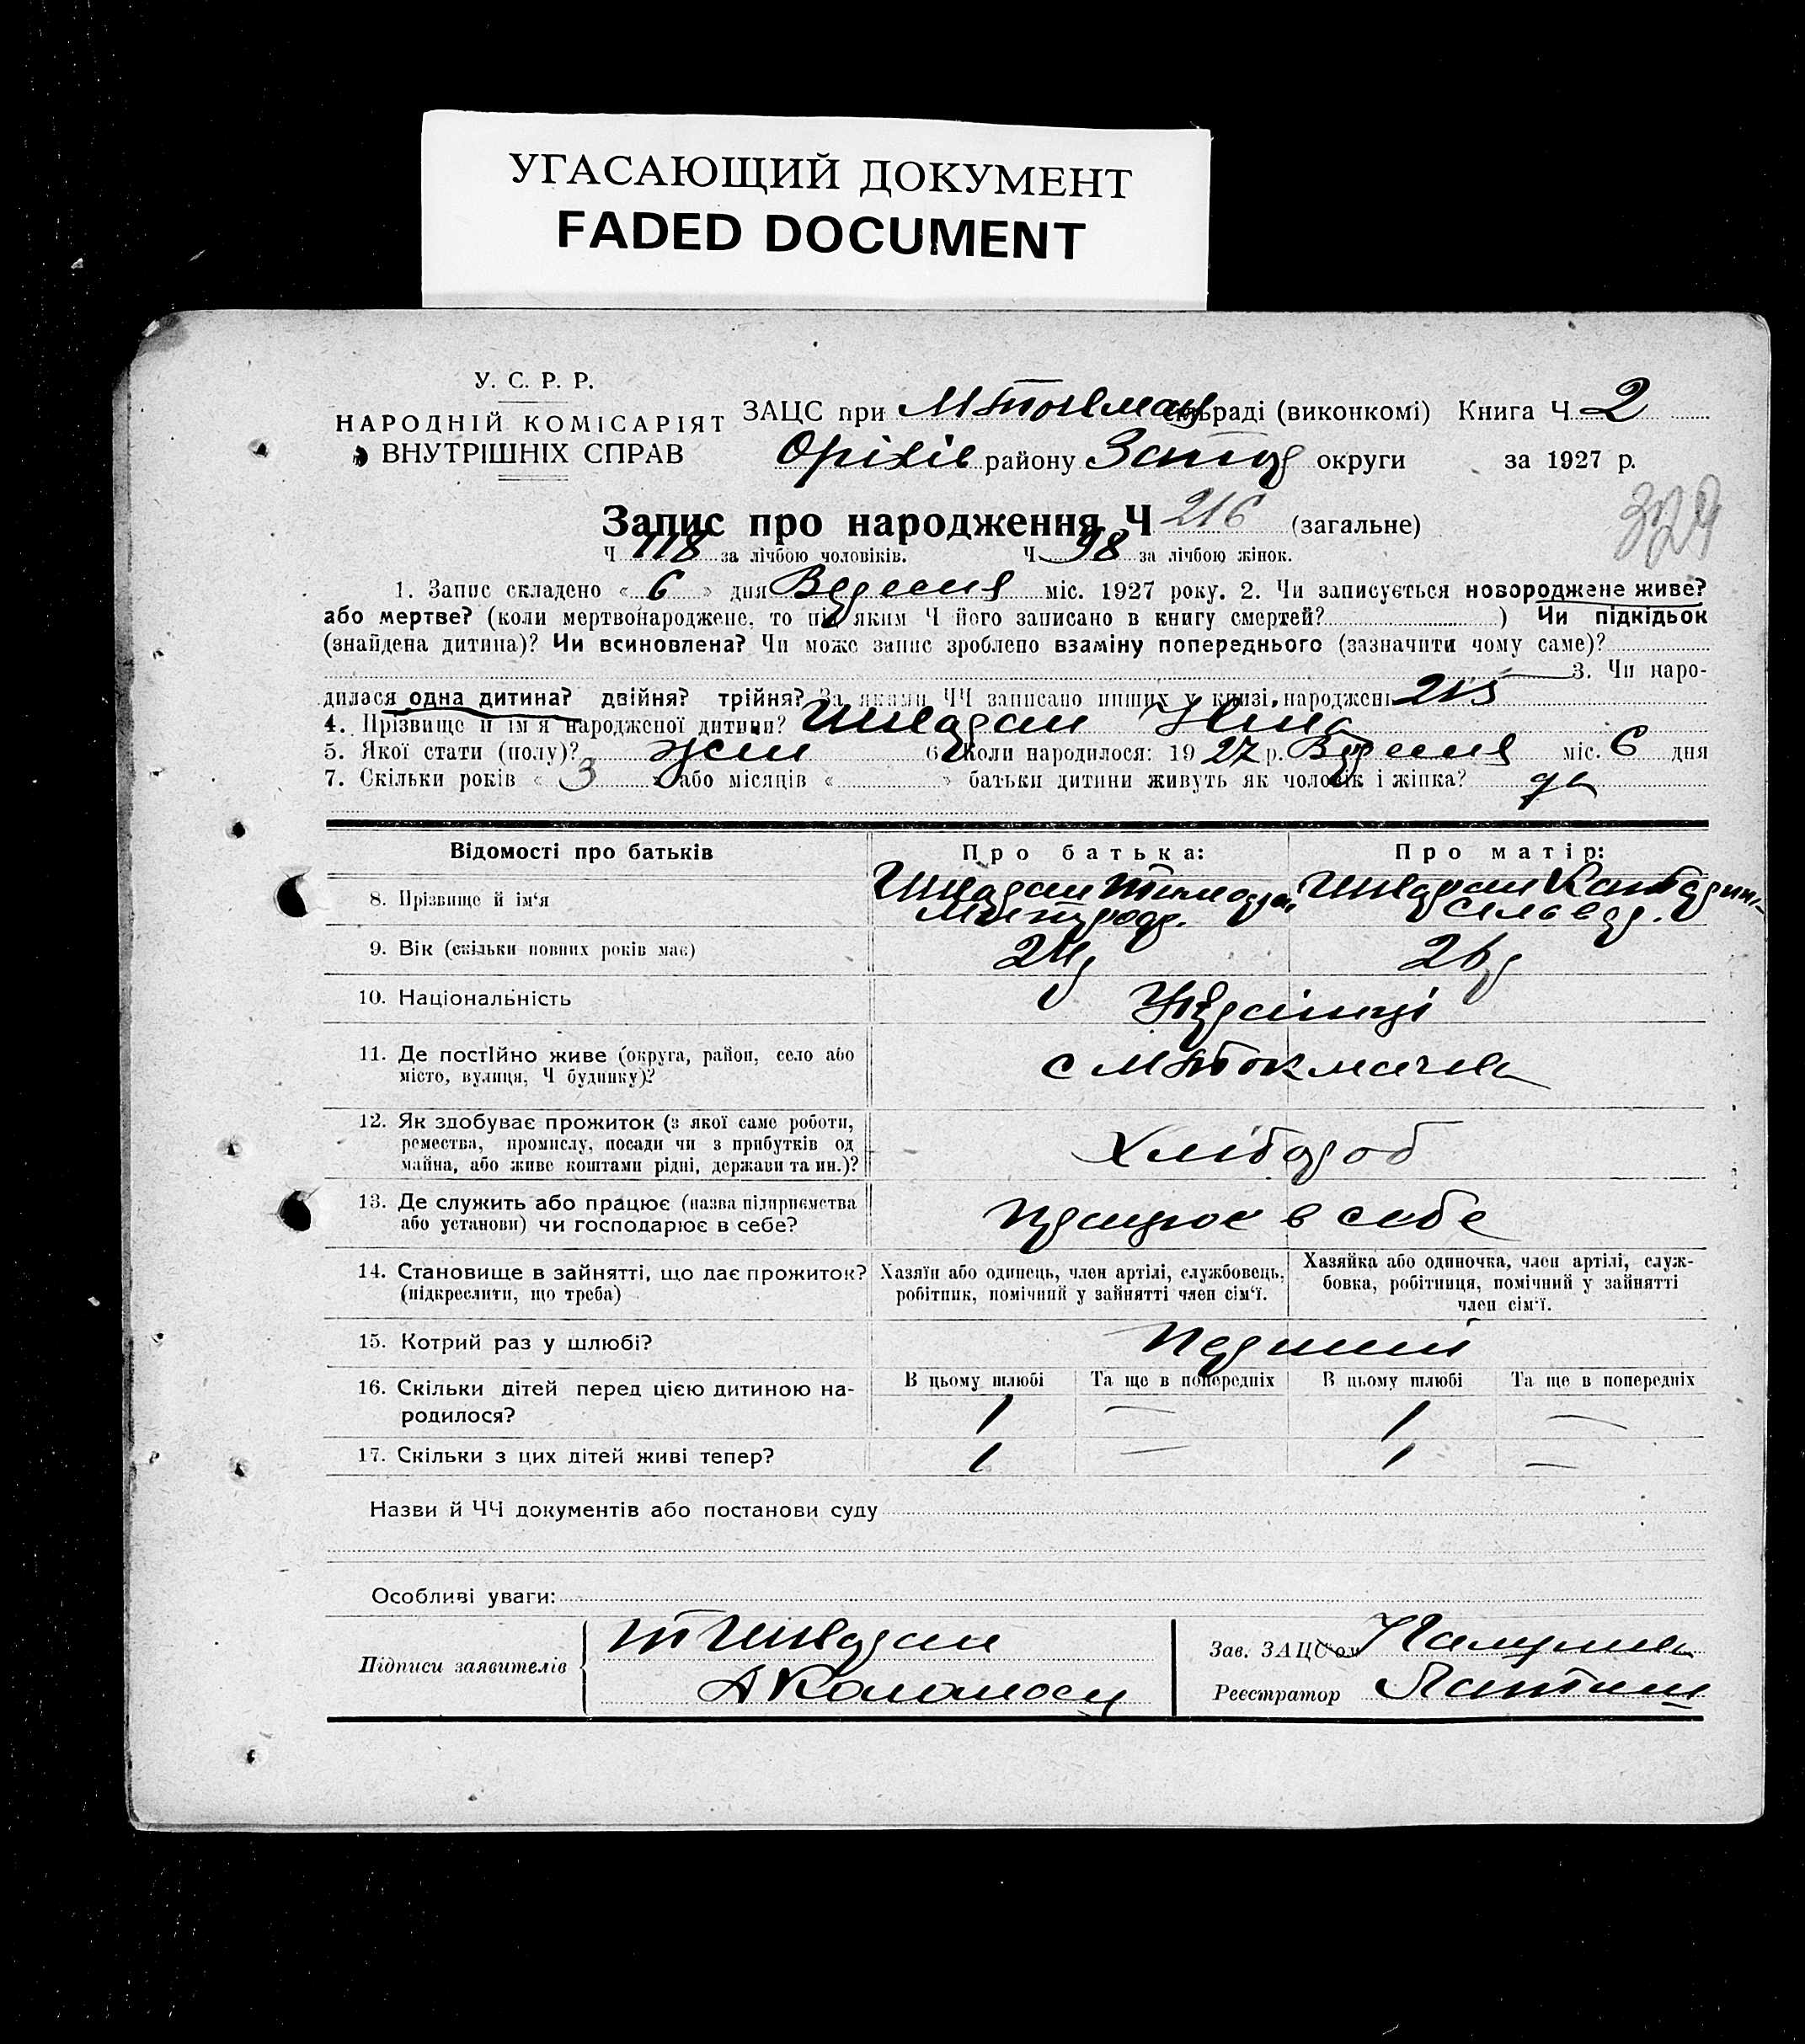 УГАСАЮЩИЙ ДОКУМЕНТ
FADED DOCUMENT
У. С. Р. Р.
НАРОДНІЙ КОМІСАРІЯТ
ВНУТРІШНІХ СПРАВ
ЗАЦС при МТокмац сільраді (виконкомі) Книга Ч 2
Оріхів району Запор округи за 1927 р.
329
Запис про народження Ч 216 (загальне)
Ч 118 за лічбою чоловіків. Ч 98 за лічбою жінок.
1. Запис складено « 6 » дня Вересня міс. 1927 року. 2. Чи записується новороджене живе?
або мертве? (коли мертвонароджене, то під яким Ч його записано в книгу смертей? ) Чи підкідьок
(знайдена дитина)? Чи всиновлена? Чи може запис зроблено взаміну попереднього (зазначити чому саме)?
3. Чи наро-
дилася одна дитина? двійня? трійня? За якими ЧЧ записано инших у книзі народжень 215
4. Прізвище й ім'я народженої дитини? Швадан Нина
5. Якої стати (полу)? жін 6. Коли народилося: 1927 р. Вересня міс. 6 дня
7. Скільки років « 3 » або місяців « » батьки дитини живуть як чоловік і жінка? да
Відомості про батьків Про батька: Про матір:
8. Прізвище й ім'я Шваран Тимофей Шваран Катерина
Митроф. Сльвер.
9. Вік (скільки повних років має) 24р 26р
10. Національність Українці
11. Де постійно живе (округа, район, село або
місто, вулиця, Ч будинку)? с МТокмачка
12. Як здобуває прожиток (з якої саме роботи,
ремества, промислу, посади чи з прибутків од
майна, або живе коштами рідні, держави та ин.)? Хлібороб
13. Де служить або працює (назва підприємства
або установи) чи господарює в себе? працює в себе
14. Становище в зайнятті, що дає прожиток?
(підкреслити, що треба)
Хазяїн або одинець, член артілі, службовець,
робітник, помічний у зайнятті член сім'ї.
Хазяйка або одиночка, член артілі, служ-
бовка, робітниця, помічний у зайнятті
член сім'ї.
15. Котрий раз у шлюбі? Перший
16. Скільки дітей перед цією дитиною на-
родилося?
В цьому шлюбі Та ще в попередніх В цьому шлюбі Та ще в попередніх
1 — 1 —
17. Скільки з цих дітей живі тепер? 1 — 1 —
Назви й ЧЧ документів або постанови суду
Особливі уваги:
Підписи заявителів
Т Шваран
А Коломоец
Зав. ЗАЦСом
Реєстратор